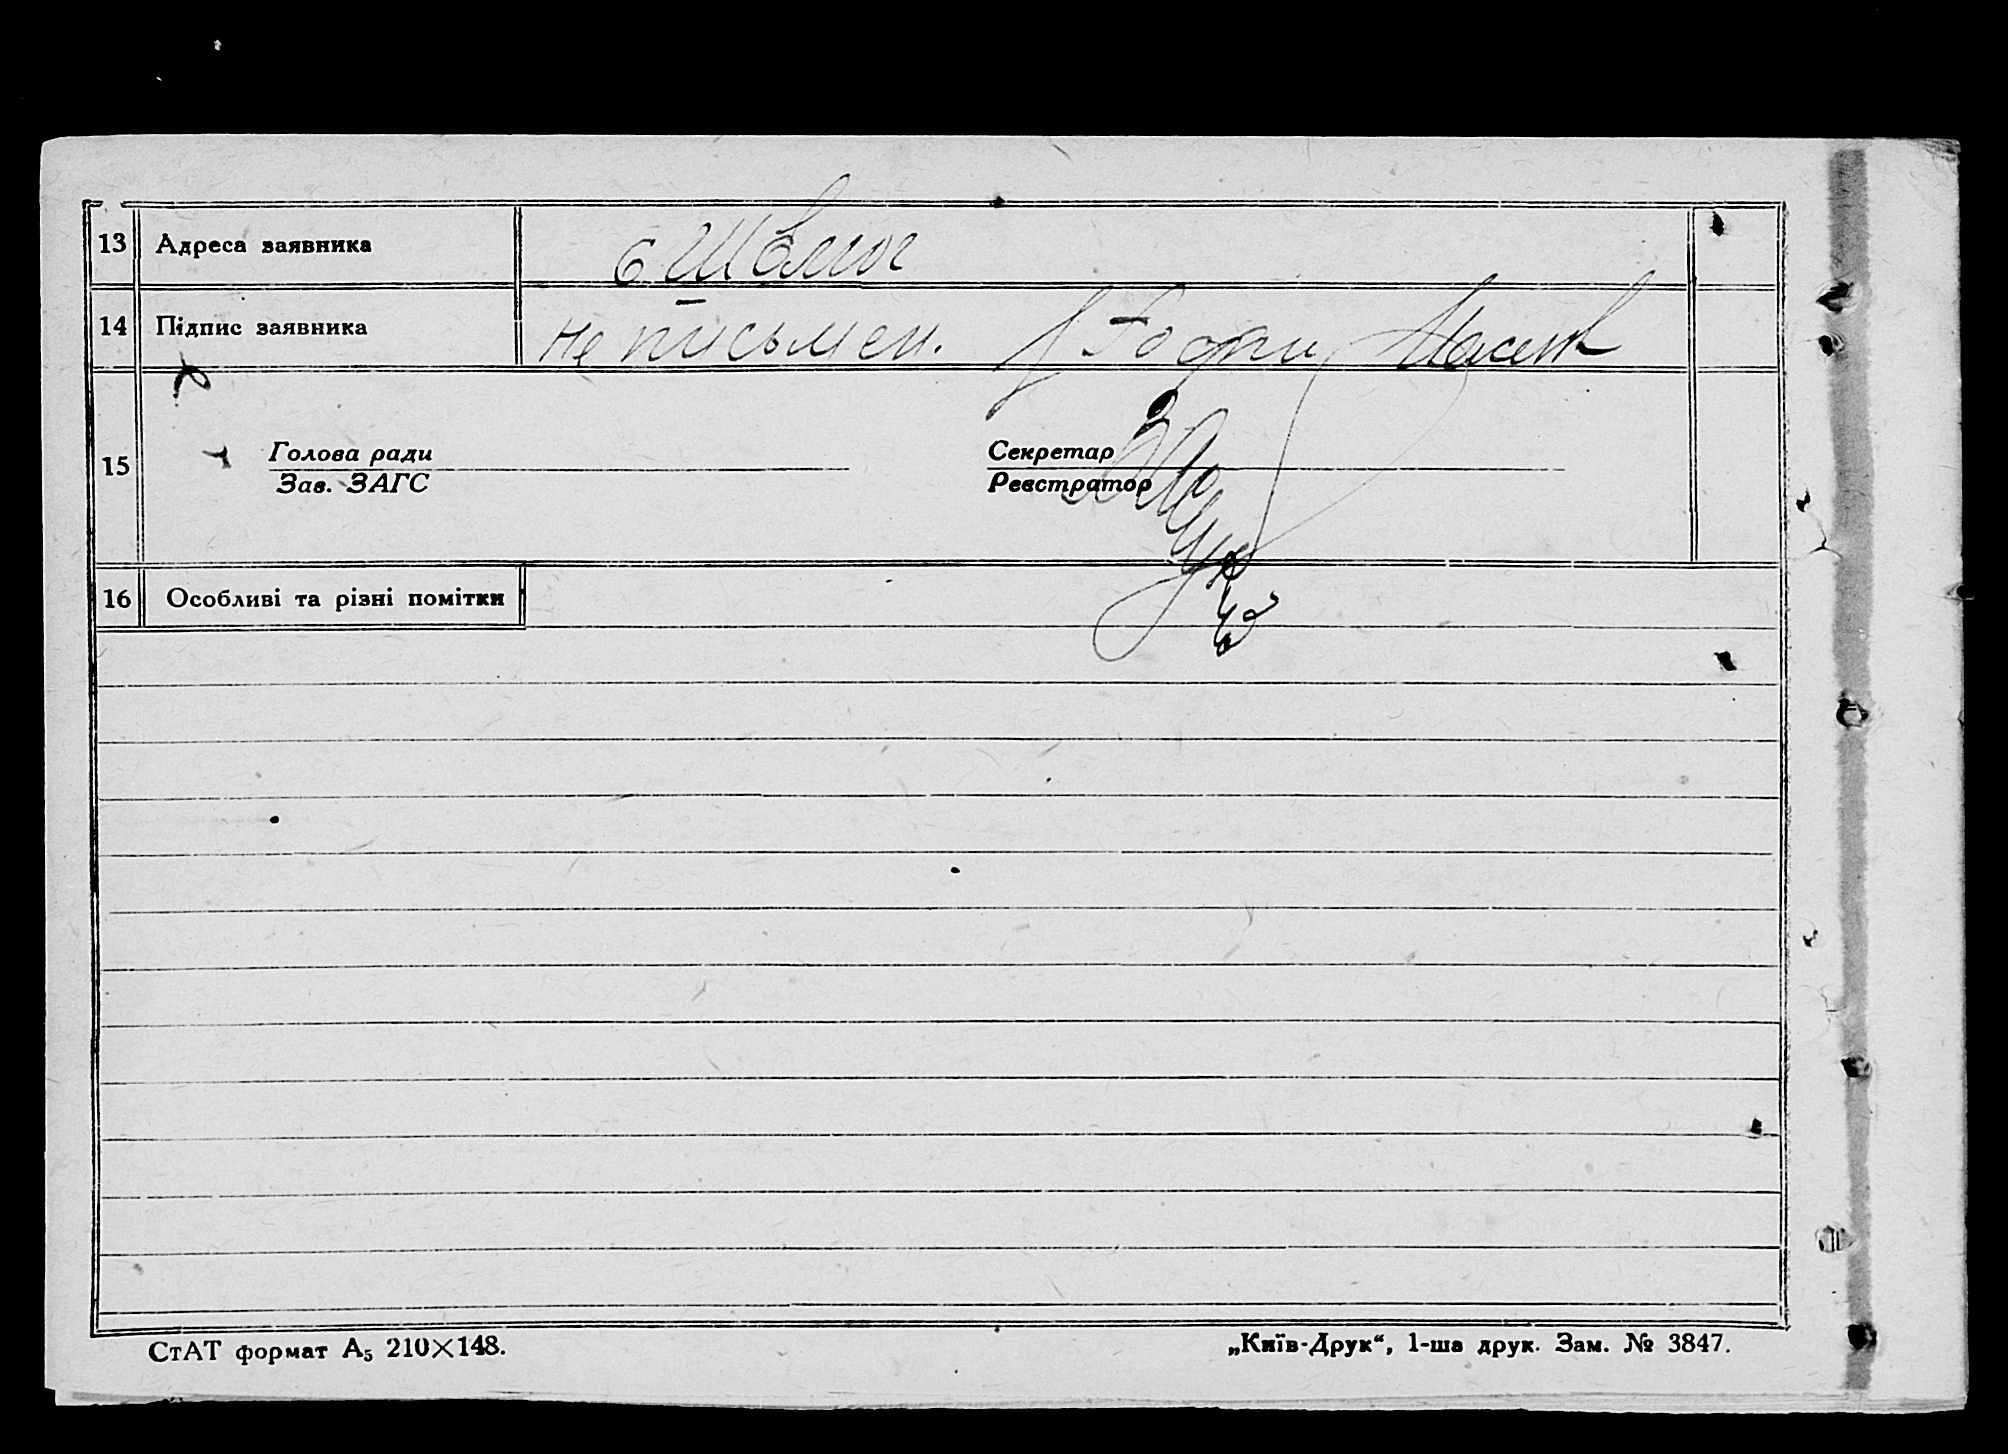 13 Адреса заявника
14 Підпис заявника не письмен.
15 Голова ради Секретар
Зав. ЗАГС Реєстратор
16 Особливі та різні помітки
СтАТ формат А₅ 210×148. „Київ-Друк“, 1-ша друк. Зам. № 3847.